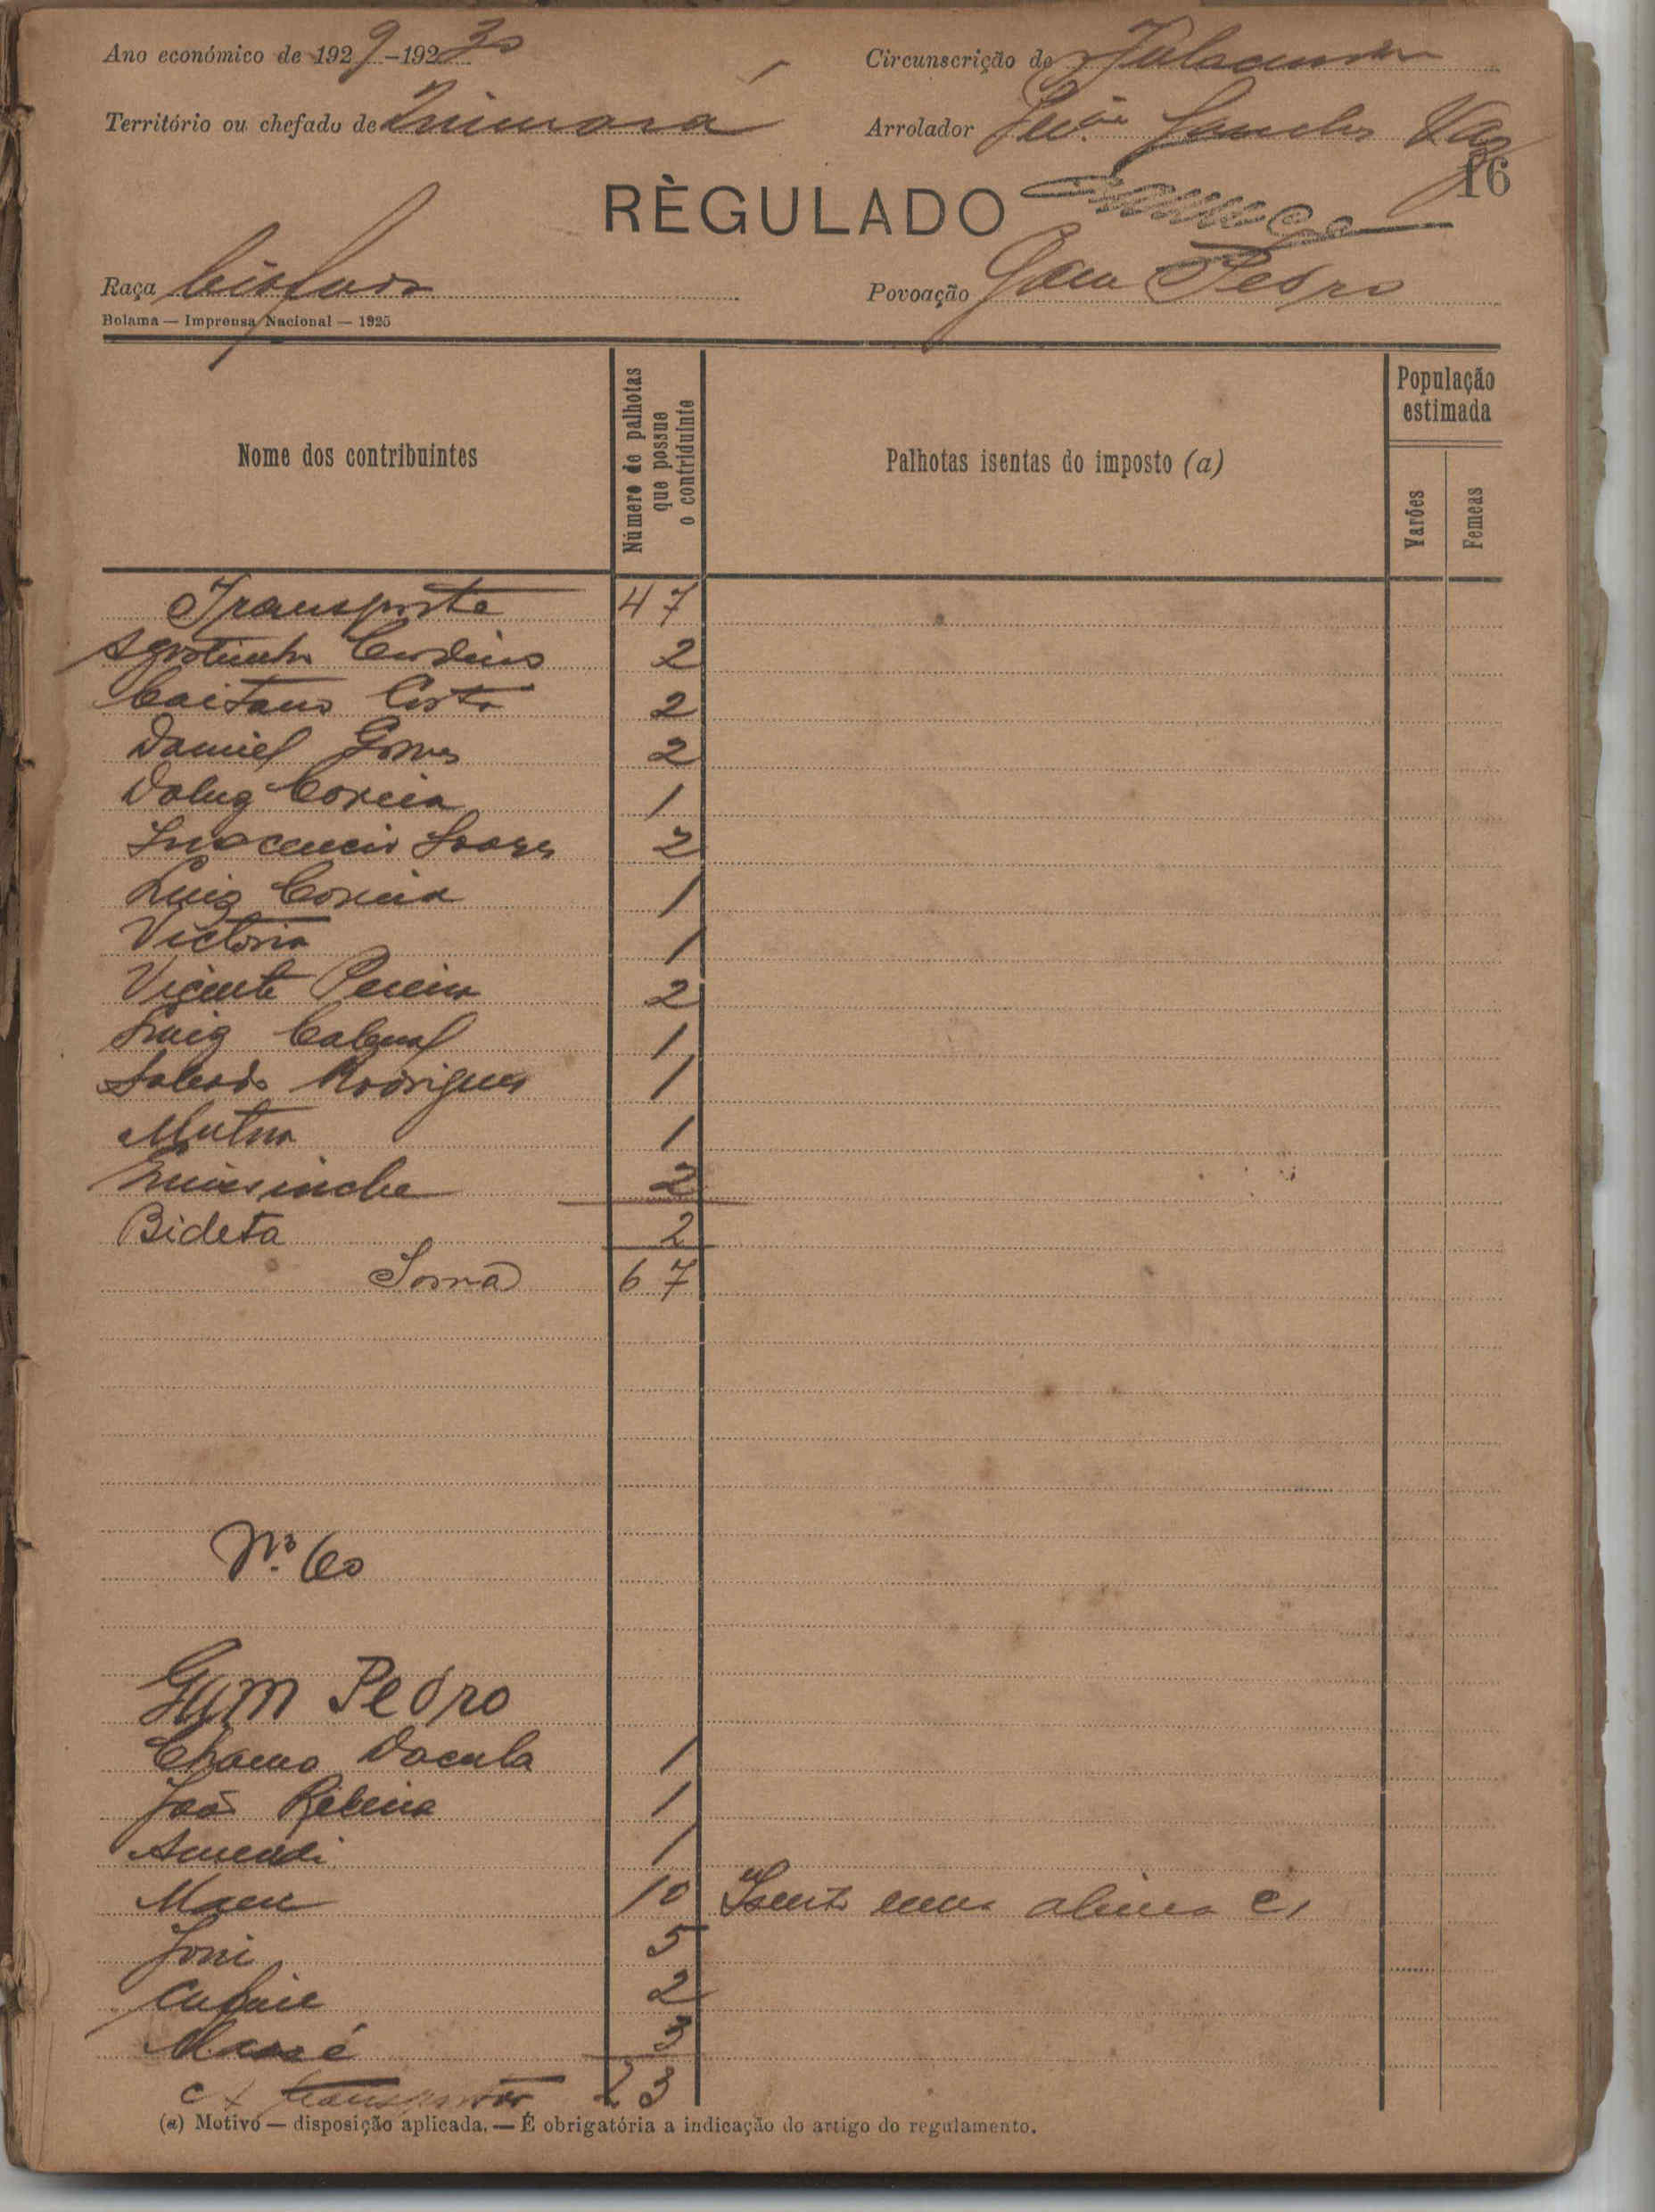 Ano económico de 1929-1930
Circunscrição de Fulacunda
Território ou chefado de Quinará
Arrolador Sanches Vaz
16
RÈGULADO
Raça
Povoação Gam Pedro
Bolama — Imprensa Nacional — 1925
Nome dos contribuintes
Número de palhotas que possue o contriduinte
Palhotas isentas do imposto (a)
População estimada
Varões
Femeas
Transporte 47
Agostinho 2
Caitano Costa 2
Daniel Gomes 2
Correia 1
Inocencio Soares 2
Luiz Correia 1
Victoria 1
Vicente Pereira 2
Luiz Cabral 1
Rodrigues 1
Mutna 1
2
Bideta 2
Soma 67
Nº 60
Gam Pedro
Dacula 1
João Ribeiro 1
Amendi 1
10 Isento uma alinea c,
Joni 5
2
3
A transportar 23
(a) Motivo — disposição aplicada. — É obrigatória a indicação do artigo do regulamento.